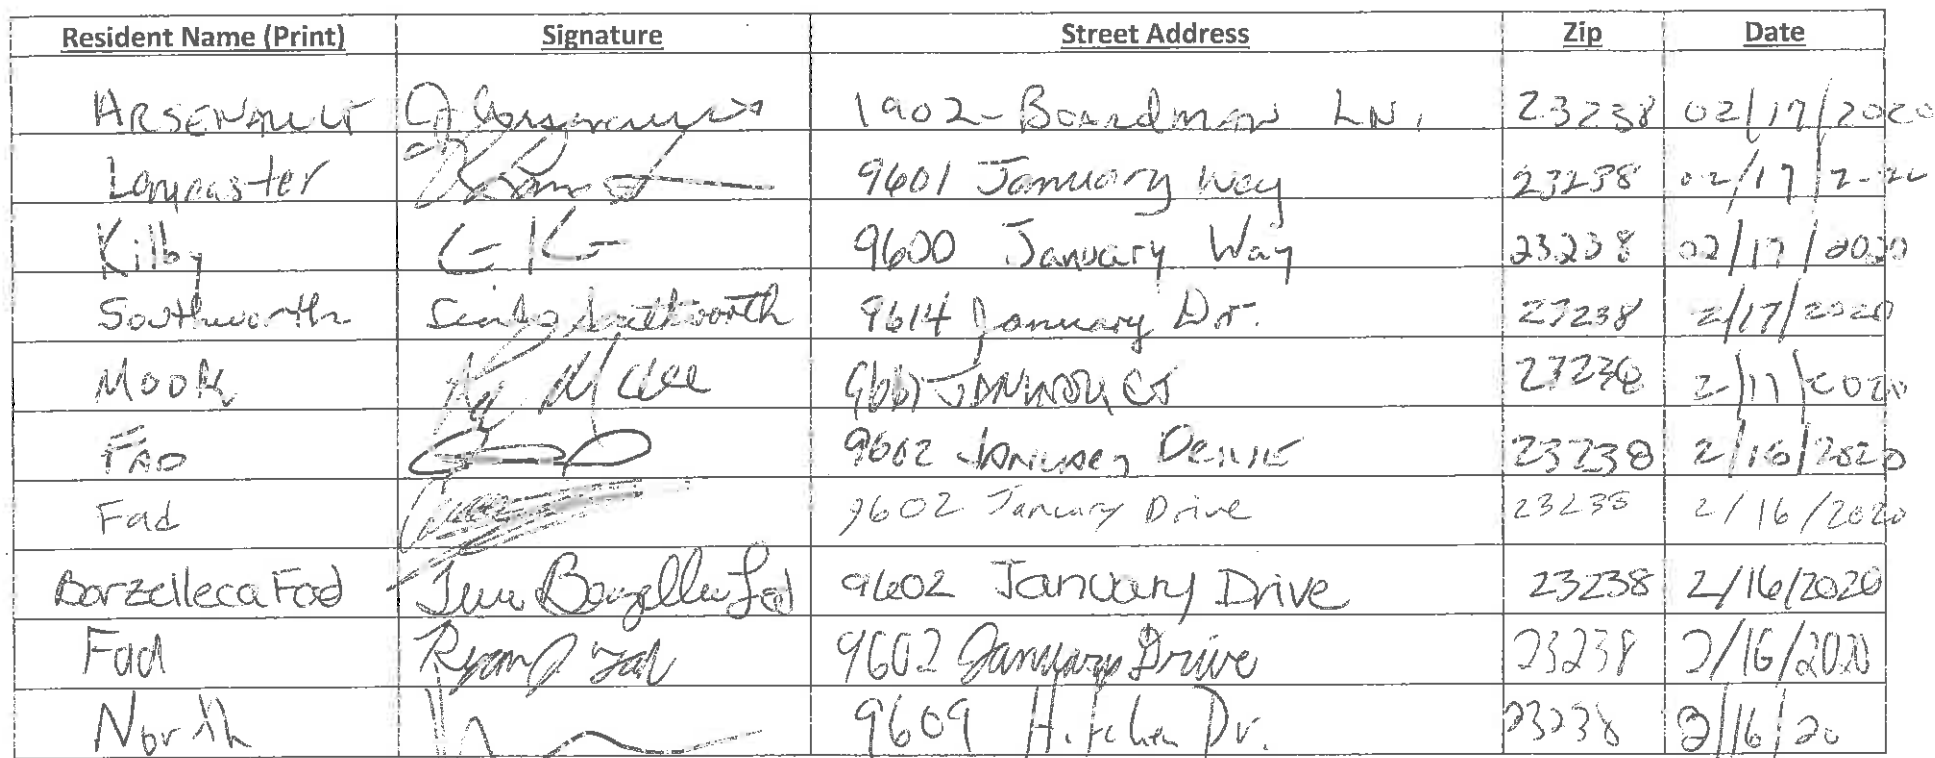 Resident Name (Print) Signature Street Address Zip Date
ARSENAULT 1902 - Boardman LN. 23238 02/17/2020
Lancaster 9601 January Way 23238 02/17/2020
Kilby 9600 January Way 23238 02/17/2020
Southworth Southworth 9614 January Dr. 23238 2/17/2020
MOOK 23238 2/17/2020
FAD 9602 January Drive 23238 2/16/2020
Fad 9602 January Drive 23238 2/16/2020
Borzelleca Fad Borzelleca Fad 9602 January Drive 23238 2/16/2020
Fad Ryan Fad 9602 January Drive 23238 2/16/2020
North 9609 Hitchin Dr. 23238 2/16/20